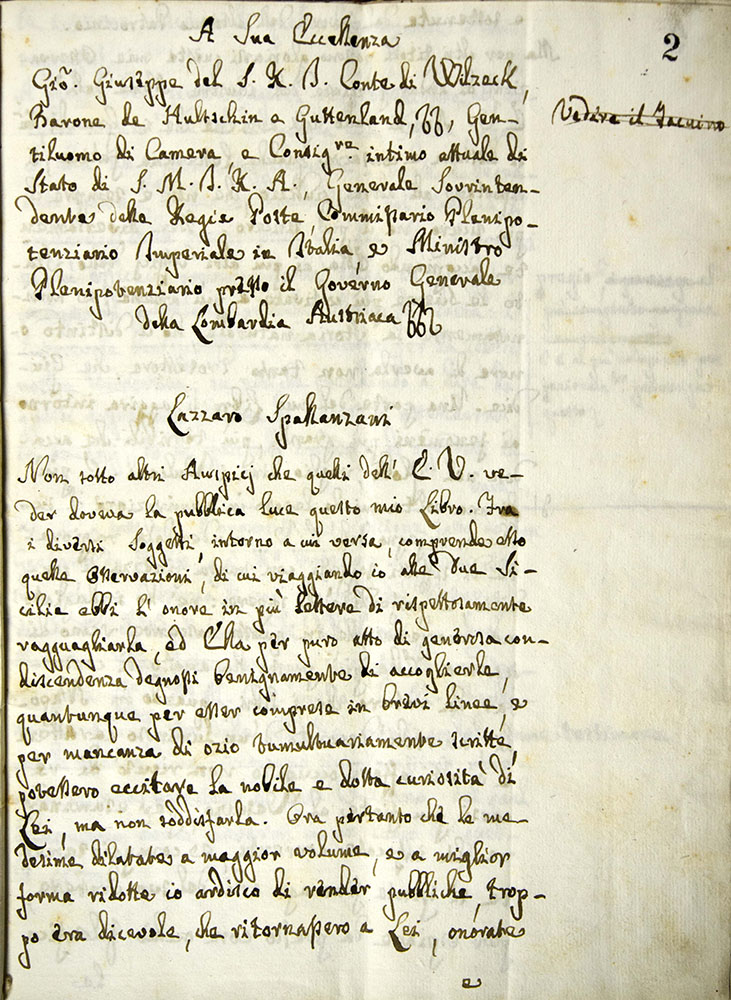 A Sua Eccellenza
2
Gio. Giuseppe del S. R. I. Conte di Wilzeck,
Barone de Hultschin e Guttenland, &&, Gen-
tiluomo di Camera, e Consigre intimo attuale di
Stato di S. M. I. R. A., Generale Sovrinten-
dente delle Regie Poste, Commissario Plenipo-
tenziario Imperiale in Italia e Ministro
Plenipotenziario presso il Governo Generale
della Lombardia Austriaca &&&
Vedire il
Lazzaro Spallanzani
Non sotto altri Auspicj che quelli dell' E. V. ve-
der doveva la pubblica luce questo mio Libro. Tra
i diversi Soggetti, intorno a cui versa, comprende esso
quelle Osservazioni, di cui viaggiando io alle due Si-
cilie ebbi l' onore in più lettere di rispettosamente
ragguagliarla, ed Ella per puro atto di generosa con-
discendenza degnossi benignamente di accoglierle,
quantunque per esser comprese in brevi linee, e
per mancanza di ozio tumultuariamente scritte,
potessero eccitare la nobile e dotta curiosità di
Lei, ma non soddisfarla. Ora pertanto che le me-
desime dilatate a maggior volume, e a miglior
forma ridotte io ardisco di render pubbliche, trop-
po era dicevole, che ritornassero a Lei, onorate
e